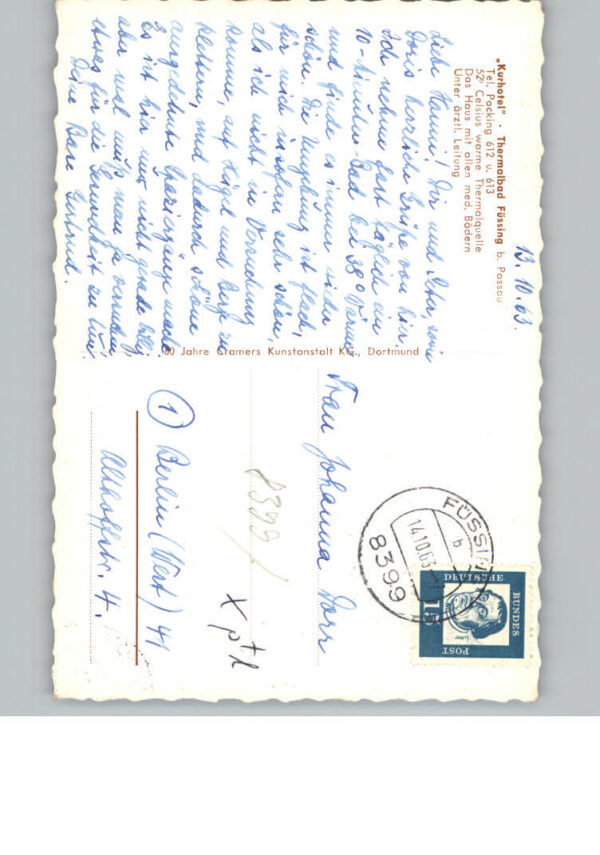 „Kurhotel" - Thermalbad Füssing b. Passau
Tel. Pocking 612 u. 613
52° Celsius warme Thermalquelle
Das Haus mit allen med. Bädern
Unter ärztl. Leitung
13.10.63.
Liebe Hanni! Dir und Peter sowie
Doris herzliche Grüße von hier.
Ich nehme fast täglich ein
10-Minuten Bad bei 38° Wärme
und finde es immer wieder
schön. Die Umgebung ist flach,
für mich insofern sehr schön,
als ich nicht in Versuchung
komme, auf Hügel und Berge zu
klettern, und dadurch schöne
ausgedehnte Spaziergänge mache.
Es ist hier nur nicht gerade billig
aber mal muß man ja versuchen
etwas für die Gesundheit zu tun.
Deine
60 Jahre Cramers Kunstanstalt KG., Dortmund
Frau Johanna Dorr
8399/
X pt1
① Berlin (West) 41
Althoffstr. 4.
FÜSSING
14.10.63
b
8399
DEUTSCHE
BUNDES
POST